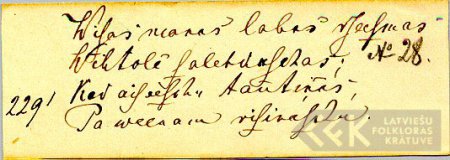 Wisas manas labas dseesmas
Wihtolê saletinschas; No 28.
2291 Kad aiseeschu tautinâs,
Pa weenam risinâschu.
LATVIEŠU
FOLKLORAS
KRĀTUVE